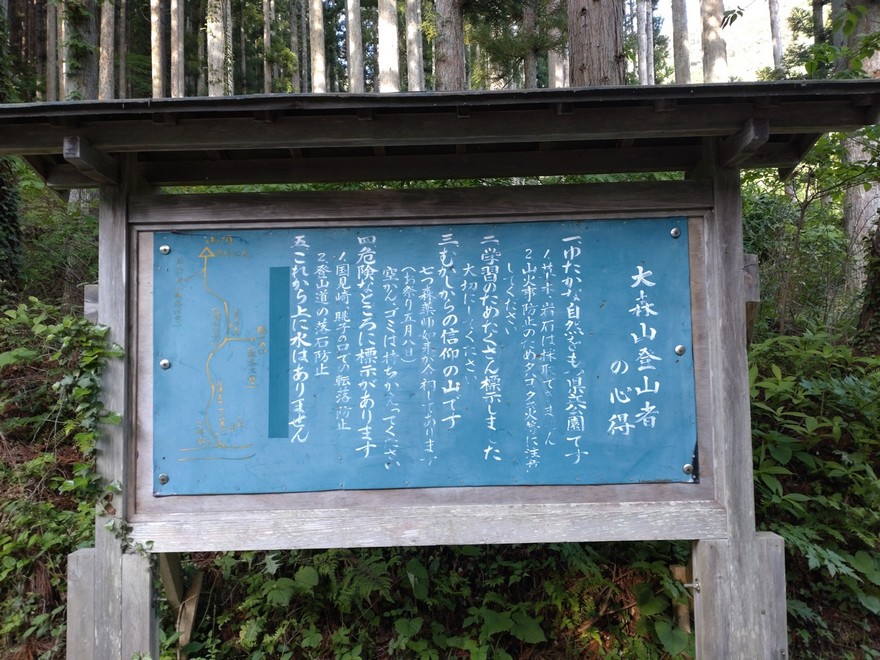 大森山登山者
の心得
一、ゆたかな自然をもつ県立公園です
1.草木、岩石は採取できません
2.山火事防止のためタバコ、タキ火等に注意
してください
二、学習のためたくさん標示しました
大切にしてください
三、むかしからの信仰の山です
七つ森薬師如来が合祠してあります
(お祭り五月八日)
空かん、ゴミは持ちかえってください
四、危険なところに標示があります
1.国見崎、眺子の口での転落防止
2.登山道の落石防止
五、これから上に水はありません